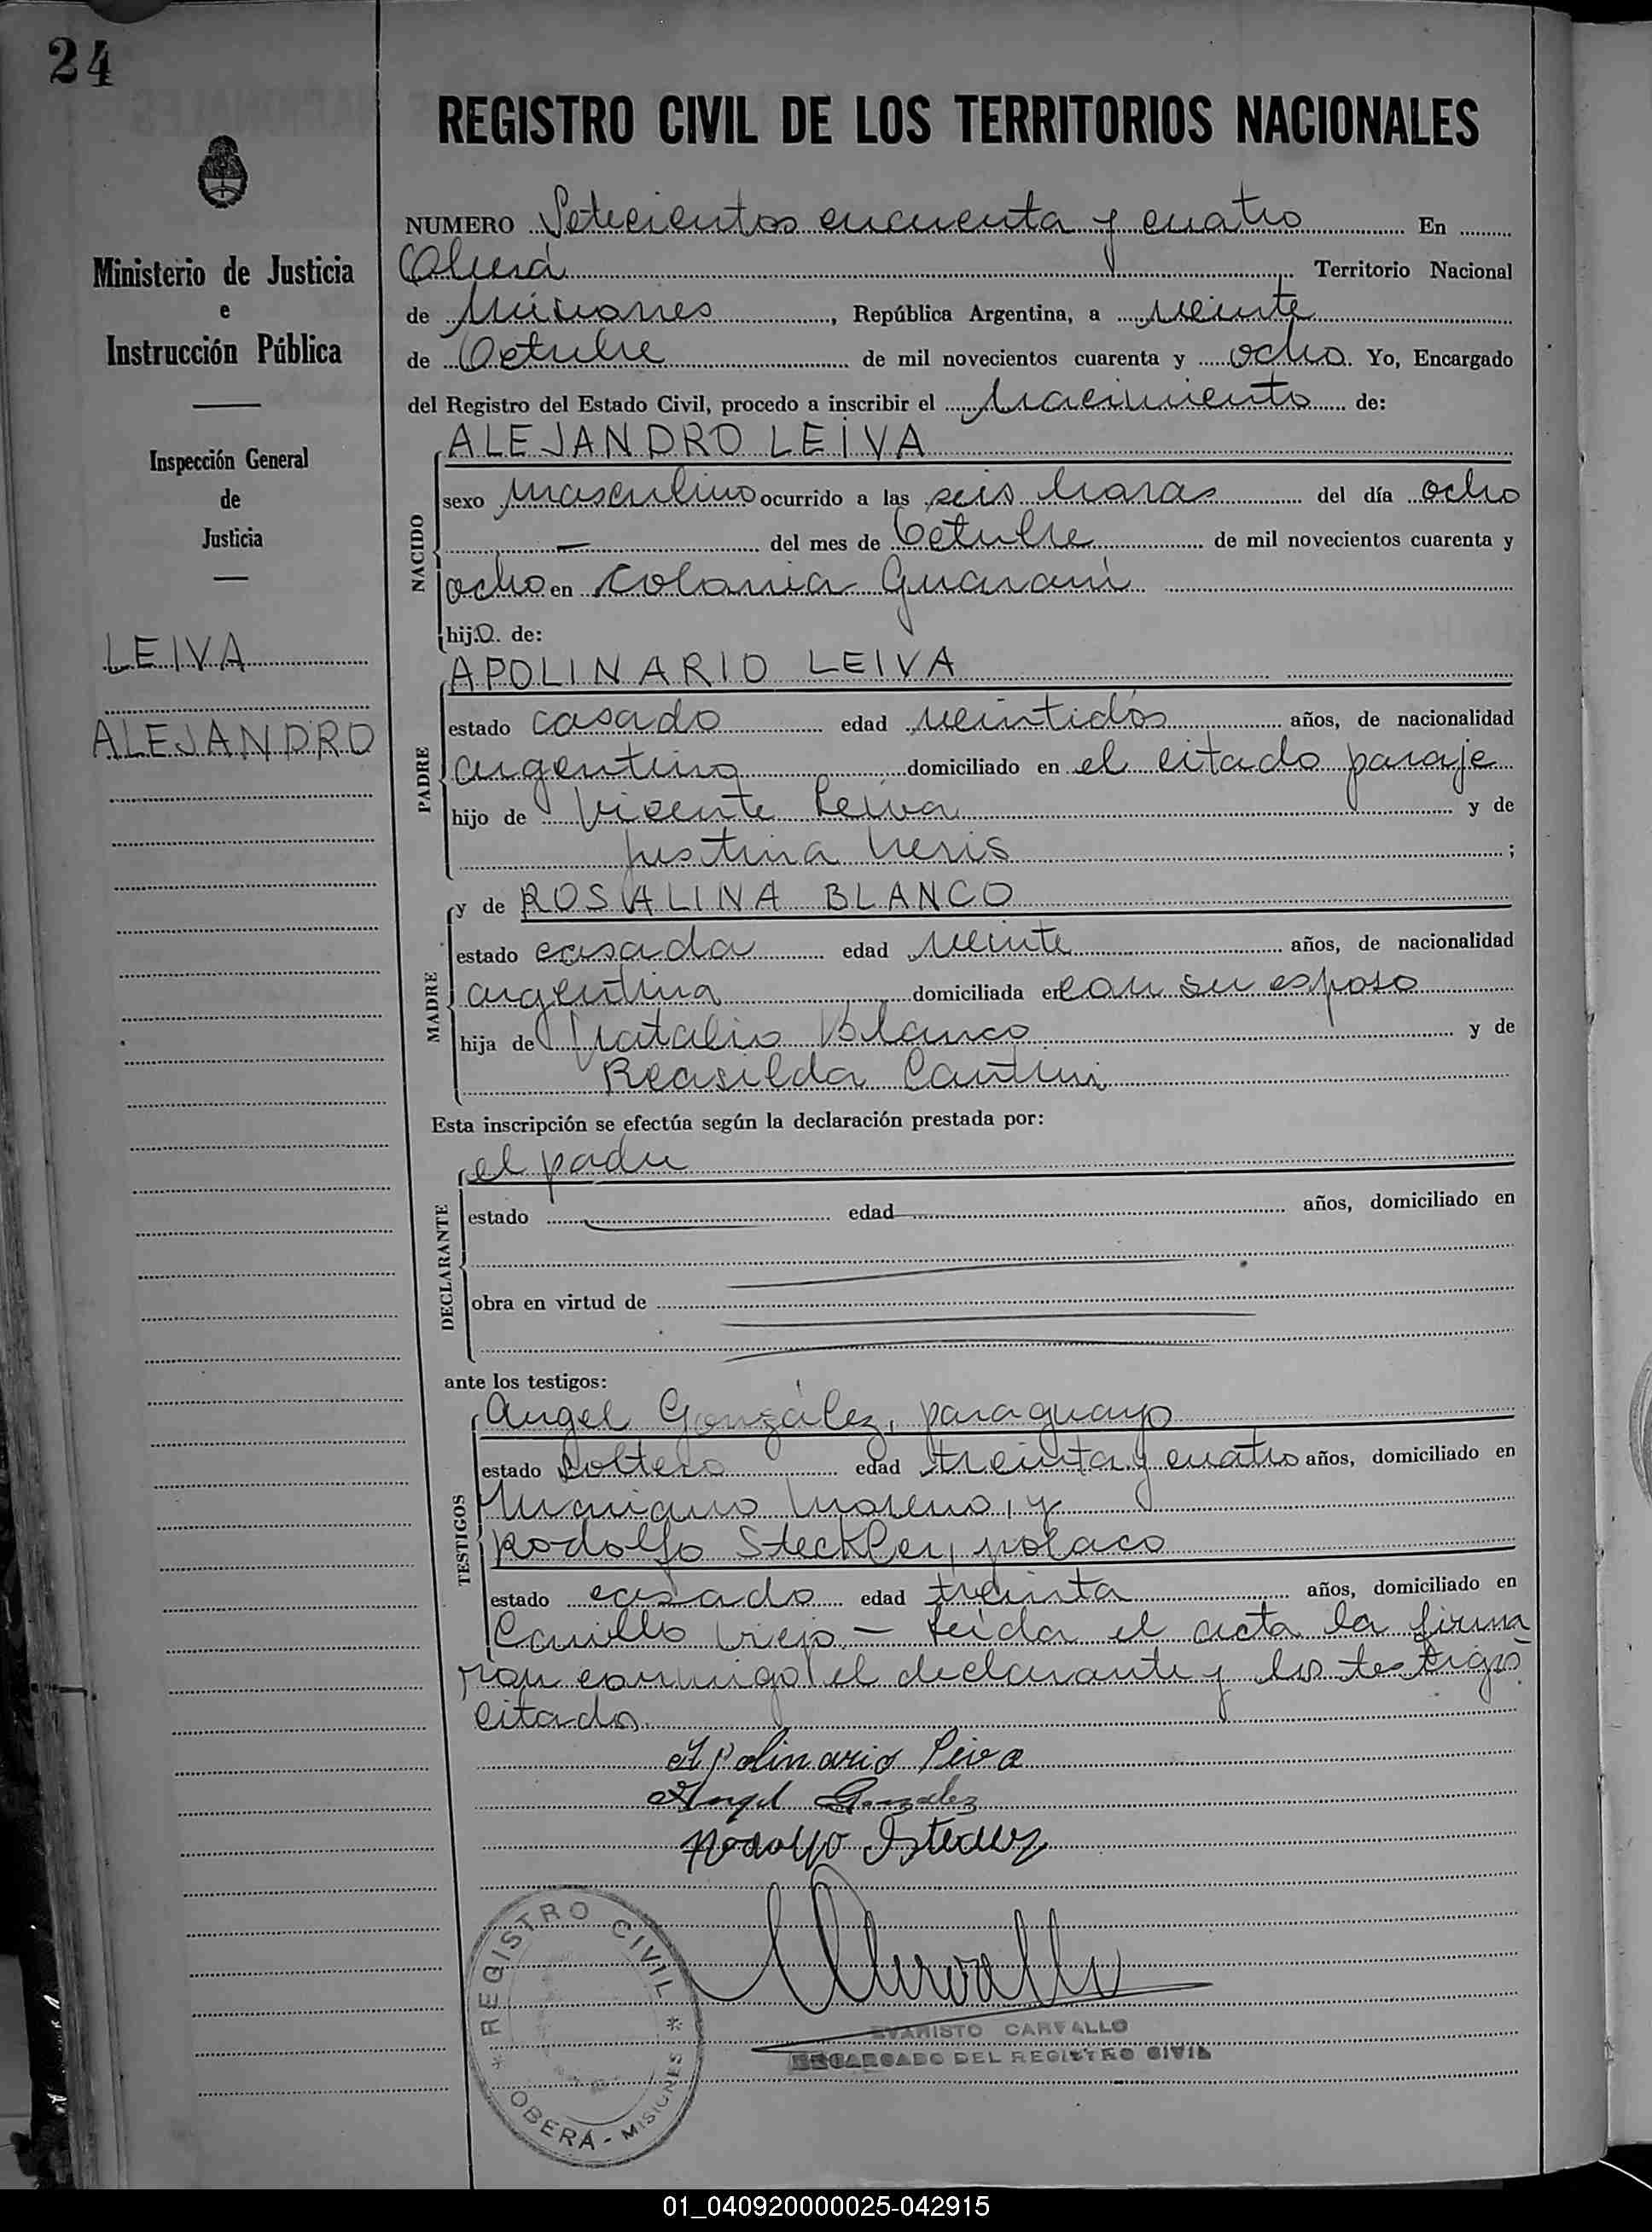 24
REGISTRO CIVIL DE LOS TERRITORIOS NACIONALES
Ministerio de Justicia
e
Instrucción Pública
Inspección General
de
Justicia
LEIVA
ALEJANDRO
NUMERO Setecientos cincuenta y cuatro En
Oberá Territorio Nacional
de Misiones, República Argentina, a veinte
de Octubre de mil novecientos cuarenta y ocho. Yo, Encargado
del Registro del Estado Civil, procedo a inscribir el nacimiento de:
NACIDO
ALEJANDRO LEIVA
sexo masculino ocurrido a las seis horas del día ocho
— del mes de Octubre de mil novecientos cuarenta y
ocho en Colonia Guaraní
hijo. de:
PADRE
APOLINARIO LEIVA
estado casado edad veintidós años, de nacionalidad
argentina domiciliado en el citado paraje
hijo de Vicente Leiva y de
Justina Neris ;
MADRE
y de ROSALINA BLANCO
estado casada edad veinte años, de nacionalidad
argentina domiciliada en con su esposo
hija de Natalio Blanco y de
Esta inscripción se efectúa según la declaración prestada por:
DECLARANTE
el padre
estado edad años, domiciliado en
obra en virtud de
ante los testigos:
TESTIGOS
Angel González, paraguayo
estado soltero edad treinta y cuatro años, domiciliado en
Mariano Moreno, y
Rodolfo Steckler, polaco
estado casado edad treinta años, domiciliado en
viejo — Leída el acta la firma
ron conmigo el declarante y los testigos
citados.
Apolinario Leiva
Angel Gonzalez
Rodolfo
REGISTRO CIVIL
* OBERÁ - MISIONES *
EVARISTO CARVALLO
ENCARGADO DEL REGISTRO CIVIL
01_040920000025-042915